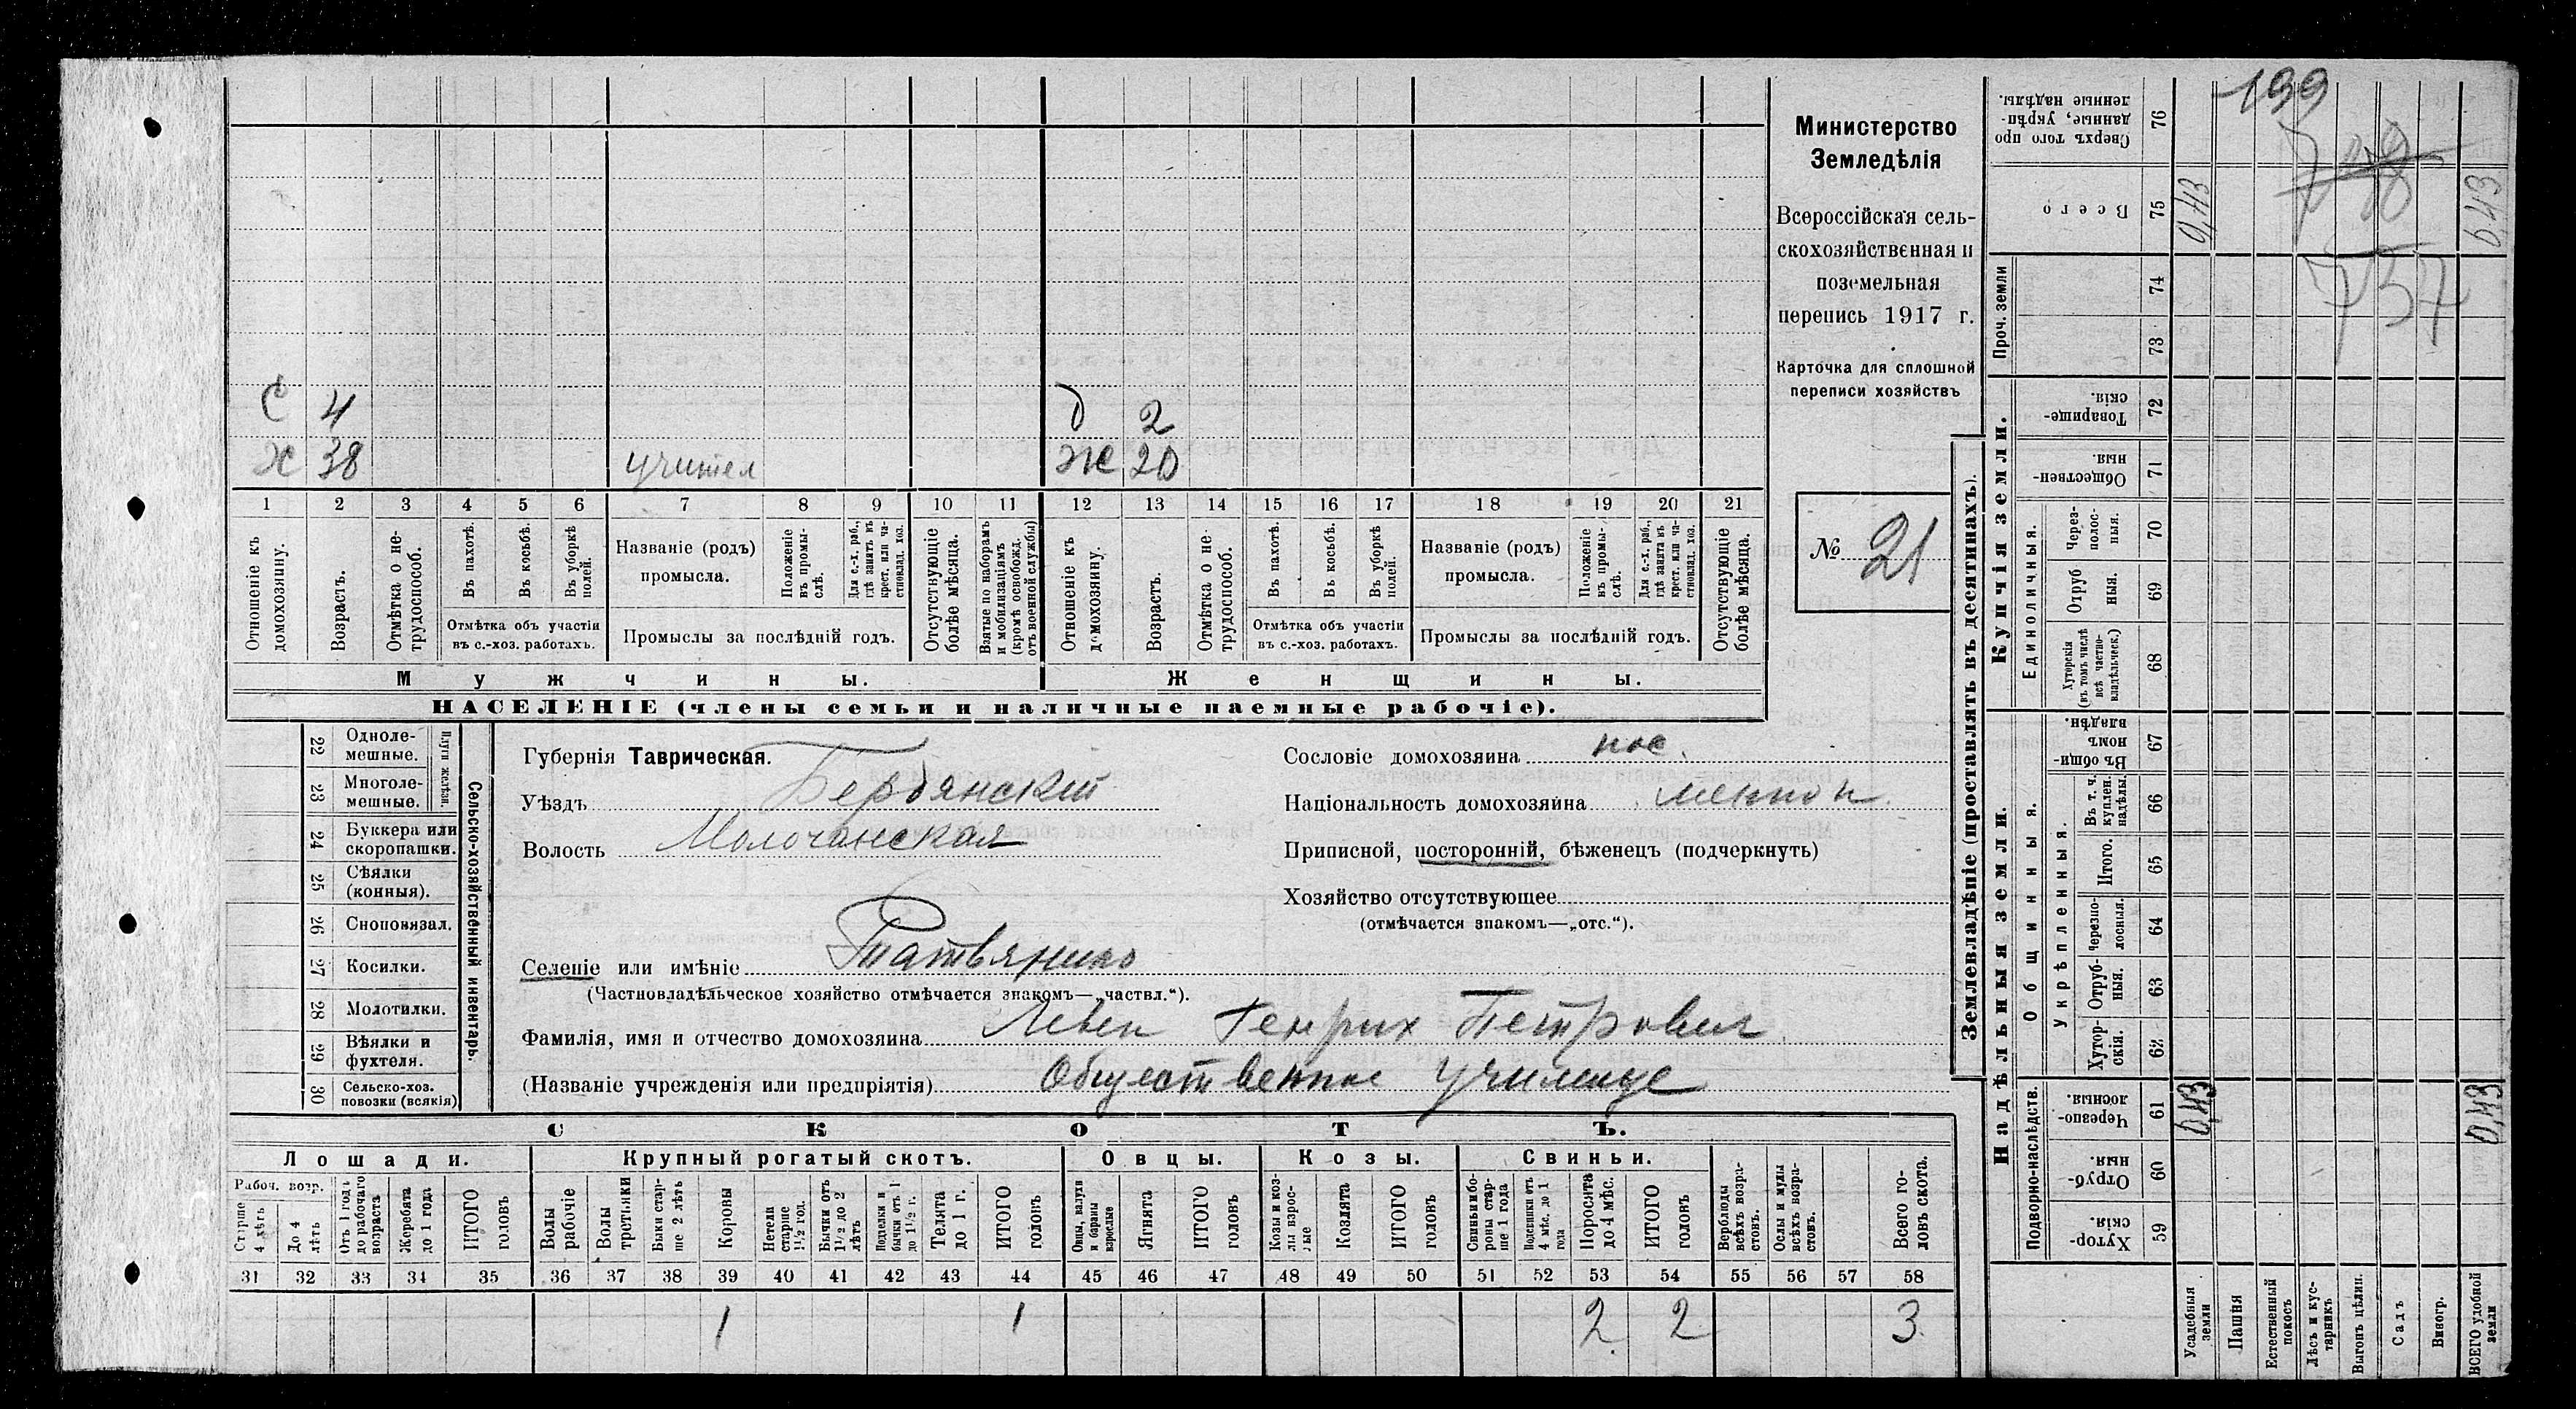 199
737
Министерство
Земледѣлія
Всероссійская сель-
скохозяйственная и
поземельная
перепись 1917 г.
Карточка для сплошной
переписи хозяйствъ
№ 21
С 4 д 2
Х 38 учител Ж 20
1 2 3 4 5 6 7 8 9 10 11 12 13 14 15 16 17 18 19 20 21
Отношеніе къ домохозяину.
Возрастъ.
Отмѣтка о не-трудоспособ.
Въ пахотѣ.
Въ косьбѣ.
Въ уборкѣ полей.
Отмѣтка объ участіи
въ с.-хоз. работахъ.
Названіе (родъ)
промысла.
Положеніе въ промы-слѣ.
Для с.-х. раб., гдѣ занятъ въ крест. или ча-стновлад. хоз.
Промыслы за послѣдній годъ.
Отсутствующіе болѣе мѣсяца.
Взятые по наборамъ и мобилизаціямъ (кромѣ освобожд. отъ военной службы)
Отношеніе къ домохозяину.
Возрастъ.
Отмѣтка о не-трудоспособ.
Въ пахотѣ.
Въ косьбѣ.
Въ уборкѣ полей.
Отмѣтка объ участіи
въ с.-хоз. работахъ.
Названіе (родъ)
промысла.
Положеніе въ промы-слѣ.
Для с.-х. раб., гдѣ занята въ крест. или ча-стновлад. хоз.
Промыслы за послѣдній годъ.
Отсутствующіе болѣе мѣсяца.
Мужчины. Женщины.
НАСЕЛЕНІЕ (члены семьи и наличные наемные рабочіе).
22 Одноле-мешные.
23 Многоле-мешные.
Плуги желѣзн.
24 Буккера или скоропашки.
25 Сѣялки (конныя).
26 Сноповязал.
27 Косилки.
28 Молотилки.
29 Вѣялки и фухтеля.
30 Сельско-хоз. повозки (всякія)
Сельско-хозяйственный инвентарь.
Губернія Таврическая.
Уѣздъ Бердянскій
Волость Молочанская
Селеніе или имѣніе
(Частновладѣльческое хозяйство отмѣчается знакомъ—„частвл.“).
Фамилія, имя и отчество домохозяина Левен Генрих Петрович
(Названіе учрежденія или предпріятія) Общественное училище
Сословіе домохозяина пос.
Національность домохозяина менон
Приписной, посторонній, бѣженецъ (подчеркнуть)
Хозяйство отсутствующее
(отмѣчается знакомъ—„отс.“).
СКОТЪ.
Лошади. Крупный рогатый скотъ. Овцы. Козы. Свиньи.
Рабоч. возр.
Старше 4 лѣтъ
До 4 лѣтъ
Отъ 1 года до рабочаго возраста
Жеребята до 1 года
ИТОГО головъ
Волы рабочіе
Волы третьяки
Быки стар-ше 2 лѣтъ
Коровы
Нетели старше 1½ год.
Бычки отъ 1½ до 2 лѣтъ
Подтелки и бычки отъ 1 до 1½ г.
Телята до 1 г.
ИТОГО головъ
Овцы, валухи и бараны взрослые
Ягнята
ИТОГО головъ
Козы и коз-лы взрос-лые
Козлята
ИТОГО головъ
Свиньи и бо-ровы стар-ше 1 года
Подсвинки отъ 4 мѣс. до 1 года
Поросята до 4 мѣс.
ИТОГО головъ
Верблюды всѣхъ возра-стовъ.
Ослы и мулы всѣхъ возра-стовъ.
Всего го-ловъ скота.
31 32 33 34 35 36 37 38 39 40 41 42 43 44 45 46 47 48 49 50 51 52 53 54 55 56 57 58
1 1 2 2 3
Землевладѣніе (проставлять въ десятинахъ).
Сверхъ того про данные, укрѣп-ленные надѣлы. 76
Всего 75 0,43 0,43
Проч. земли 74
73
Купчія земли.
Товарище-скія. 72
Обществен-ныя. 71
Единоличныя.
Через-полос-ныя. 70
Отруб ныя. 69
Хуторскія (въ томъ числѣ всѣ частно-владѣльческ.) 68
Надѣльныя земли.
Общинныя.
Въ общи-номъ владѣн. 67
Укрѣпленныя.
Въ т. ч. куплен. надѣлы. 66
Итого. 65
Черезпо-лосныя. 64
Отруб-ныя. 63
Хутор-скія. 62
Подворно-наслѣдств.
Черезпо-лосныя. 61 0,43 0,43
Отруб-ныя. 60
Хутор-скія. 59
Усадебныя земли
Пашня
Естественный покосъ
Лѣсъ и кус-тарникъ
Выгонъ цѣлин.
Садъ
Виногр.
ВСЕГО удобной земли